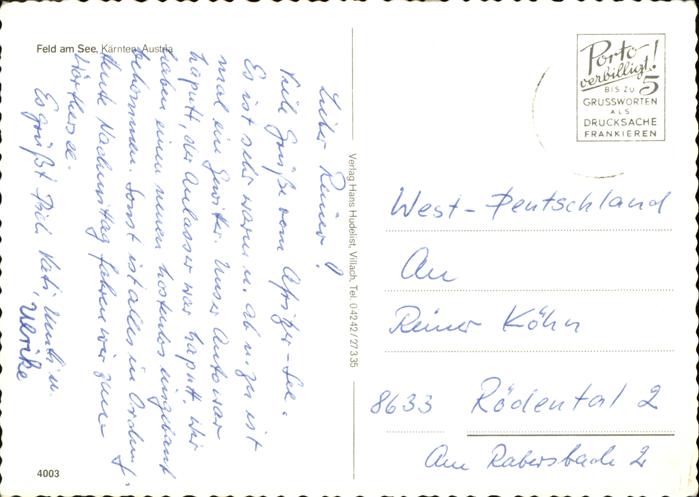 Feld am See, Kärnten, Austria
Lieber Reiner!
Viele Grüße vom Afritzer-See.
Es ist sehr warm u. ab u. zu ist
mal ein Gewitter. Unser Auto war
kaputt, der Anlasser war kaputt. Wir
haben einen neuen kostenlos eingebaut
bekommen. Sonst ist alles in Ordnung.
Heute Nachmittag fahren wir zum
Wörthersee.
Es grüßt Dich Vati, Mutti u.
Ulrike
4003
Verlag Hans Hudelist, Villach, Tel. 04242/27335
Porto
verbilligt!
BIS ZU 5
GRUSSWORTEN
ALS
DRUCKSACHE
FRANKIEREN
West-Deutschland
An
Reiner Köhn
8633 Rödental 2
Am Rabersbach 2